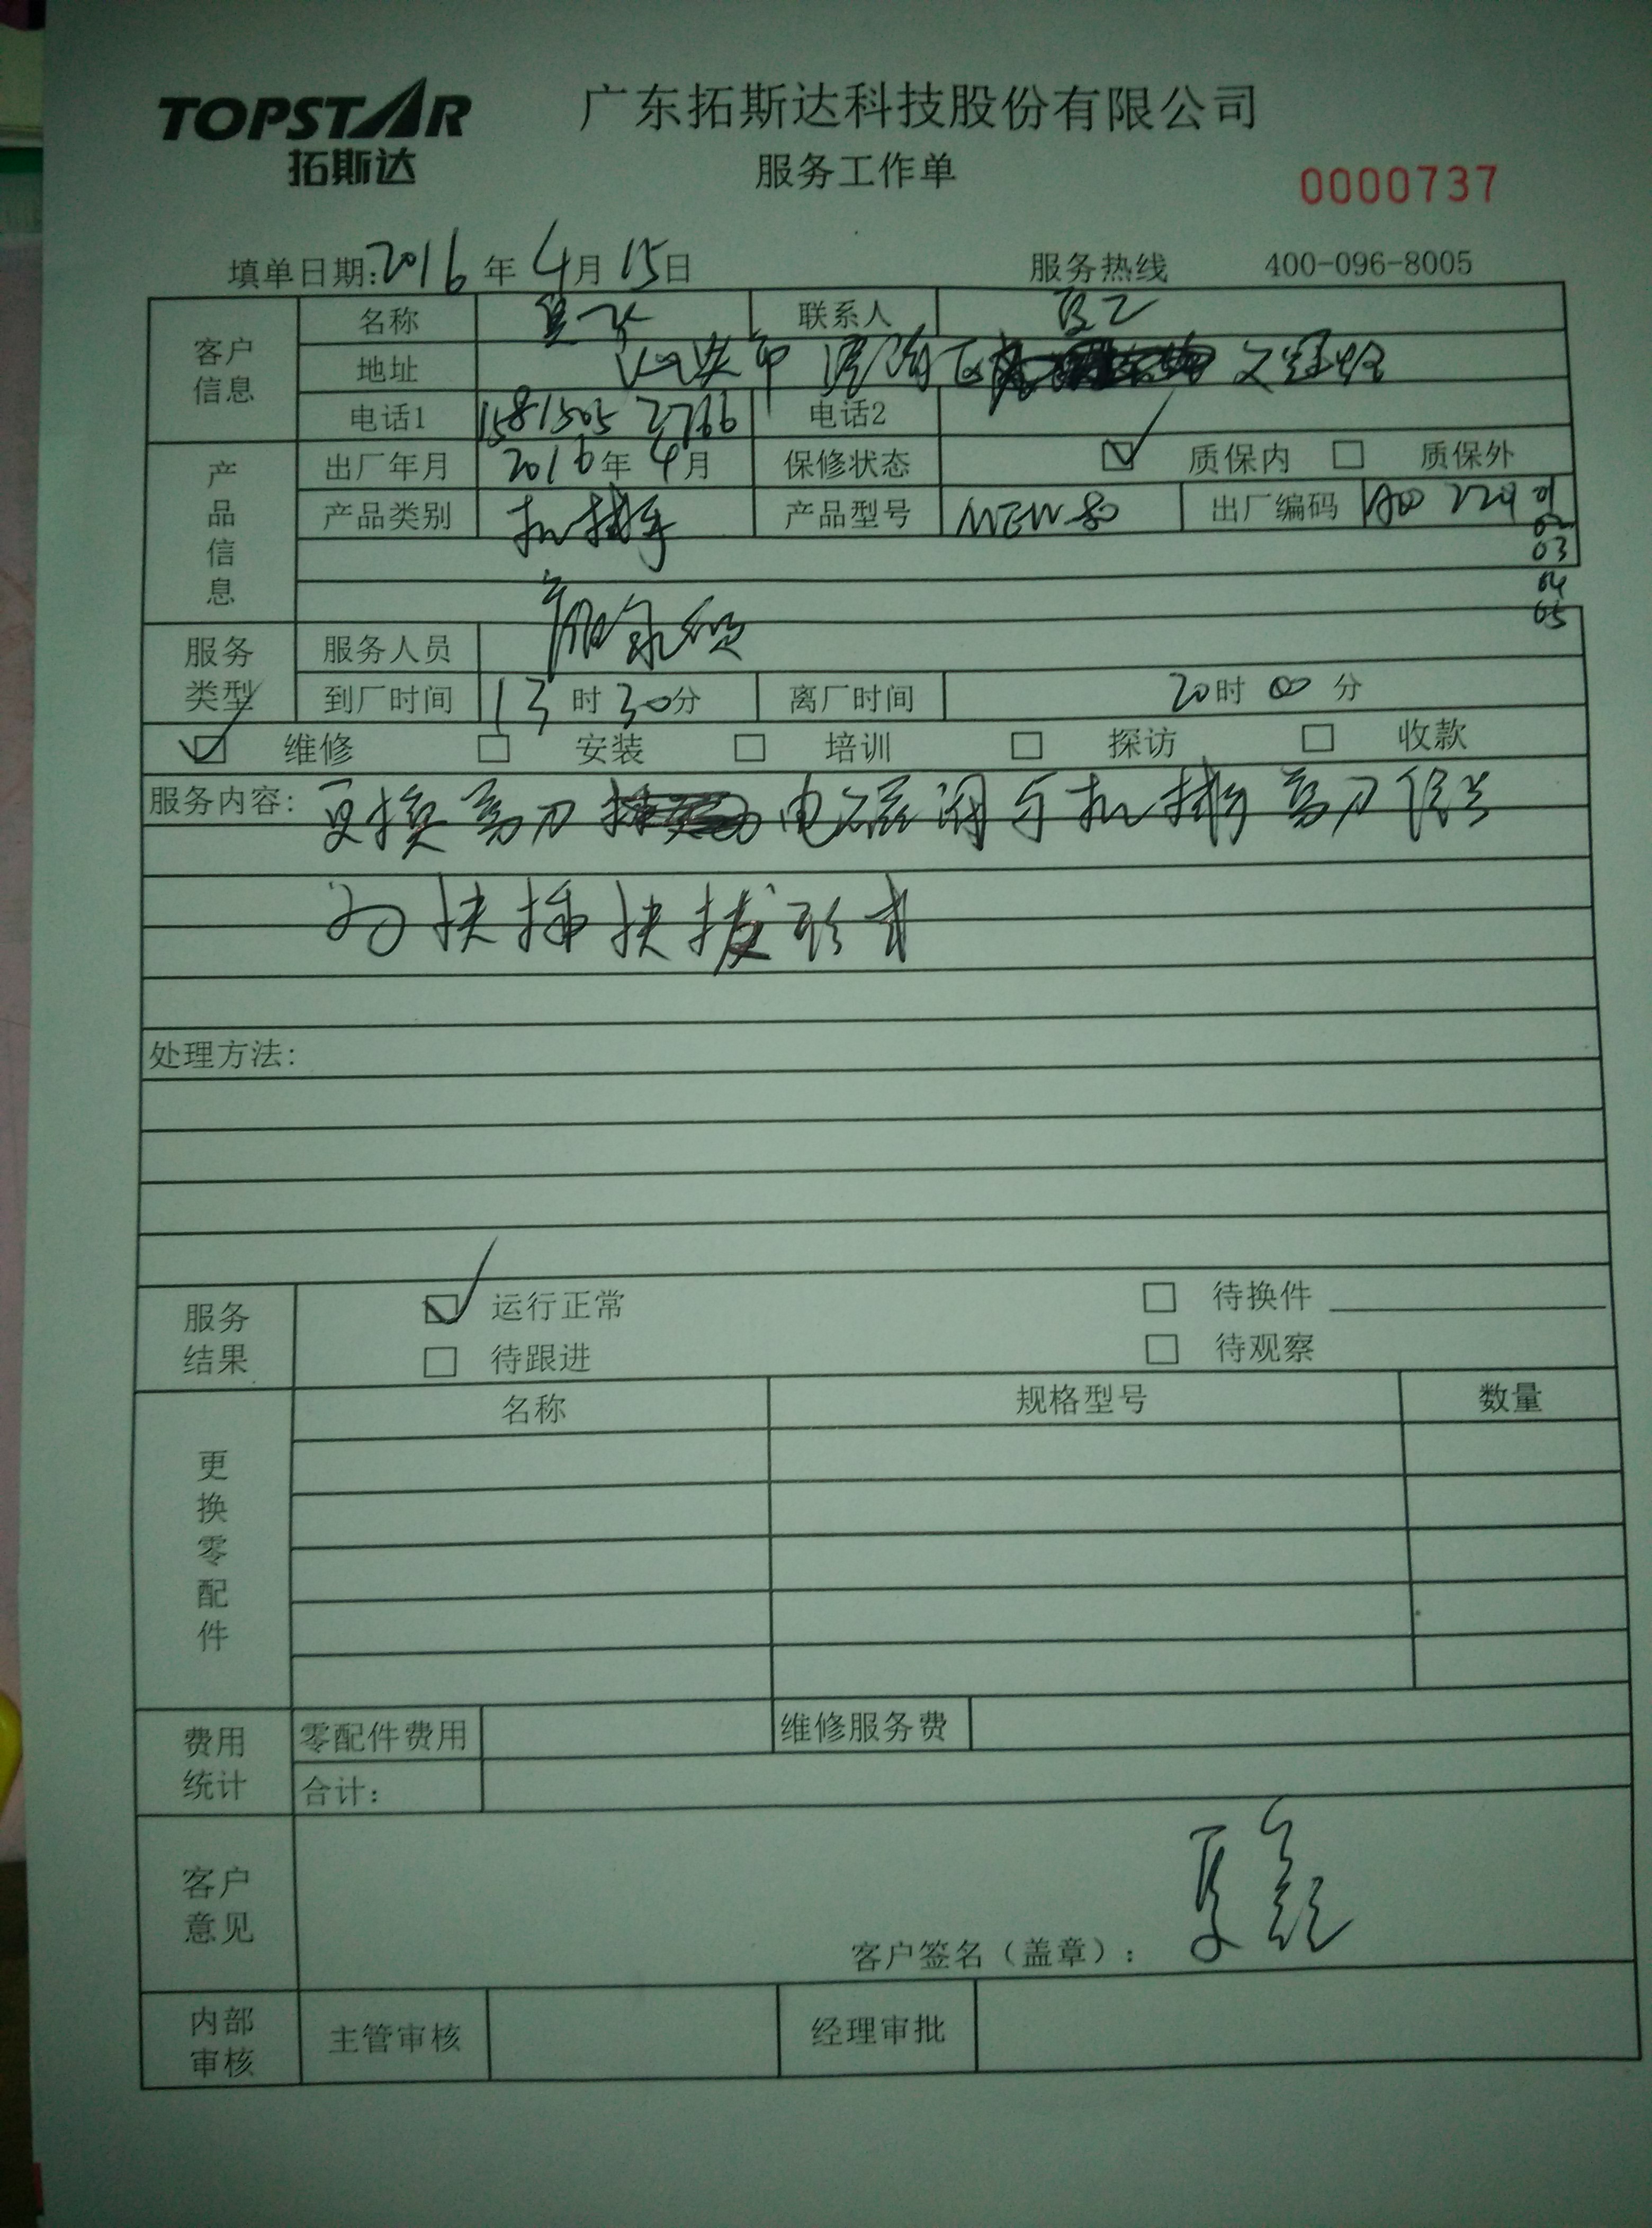 TOPSTAR
拓斯达
广东拓斯达科技股份有限公司
服务工作单
0000737
填单日期:2016年4月15日 服务热线 400-096-8005
客户信息
名称 联系人
地址 汕头市 区
电话1 15815052766 电话2
产品信息
出厂年月 2016年4月 保修状态 ☑ 质保内 □ 质保外
产品类别 机械手 产品型号 出厂编码
02
03
04
05
服务类型
服务人员
到厂时间 13时30分 离厂时间 20时00分
☑ 维修 □ 安装 □ 培训 □ 探访 □ 收款
服务内容: 更换剪刀 电磁阀与机械手剪刀信号
为快插快拔形式
处理方法:
服务结果
☑ 运行正常 □ 待换件
□ 待跟进 □ 待观察
更换零配件
名称 规格型号 数量
费用统计
零配件费用 维修服务费
合计:
客户意见
客户签名(盖章): 夏
内部审核
主管审核 经理审批